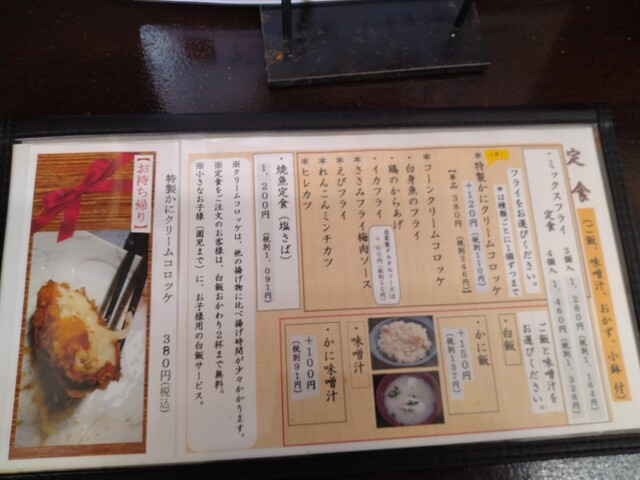 定食
(ご飯、味噌汁、おかず、小鉢 付)
・ミックスフライ定食
3個入 1,280円 (税別1,164円)
4個入 1,460円 (税別1,328円)
フライをお選びください。
*は種類ごとに1個ずつまで
*特製かにクリームコロッケ
+120円(税別110円)
【単品 380円 (税別346円)】
*コーンクリームコロッケ
・白身魚のフライ
・鶏のからあげ
・イカフライ
・ささみフライ梅肉ソース
*えびフライ
*れんこんミンチカツ
*ヒレカツ
自家製タルタルソースは
ご飯と味噌汁を
お選びください。
・白飯
・かに飯
+150円
(税別137円)
・味噌汁
・かに味噌汁
+100円
(税別91円)
・焼魚定食(塩さば)
1,200円 (税別1,091円)
※クリームコロッケは、他の揚げ物に比べ揚げ時間が少々かかります。
※定食をご注文のお客様は、白飯おかわり2杯まで無料。
※小さなお子様(園児まで)に、お子様用の白飯サービス。
特製かにクリームコロッケ 380円(税込)
【お持ち帰り】